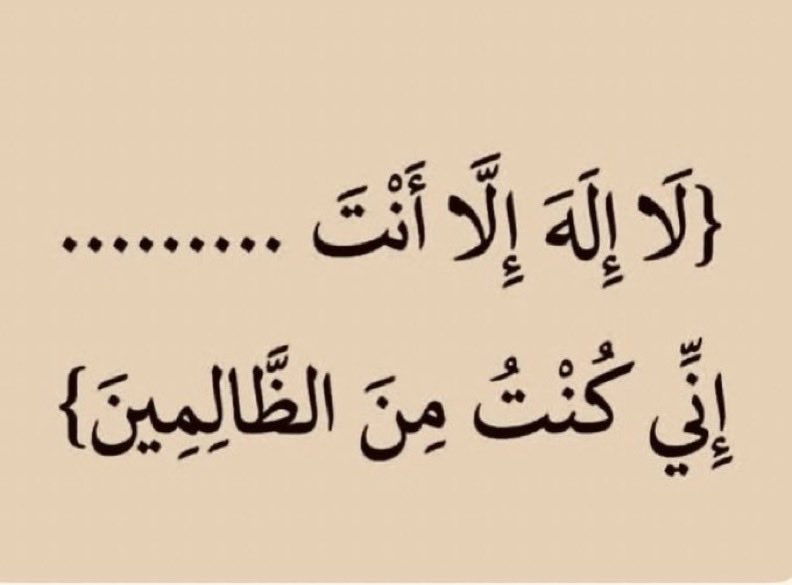 {لَا إِلَهَ إِلَّا أَنْتَ .........
إِنِّي كُنْتُ مِنَ الظَّالِمِينَ}